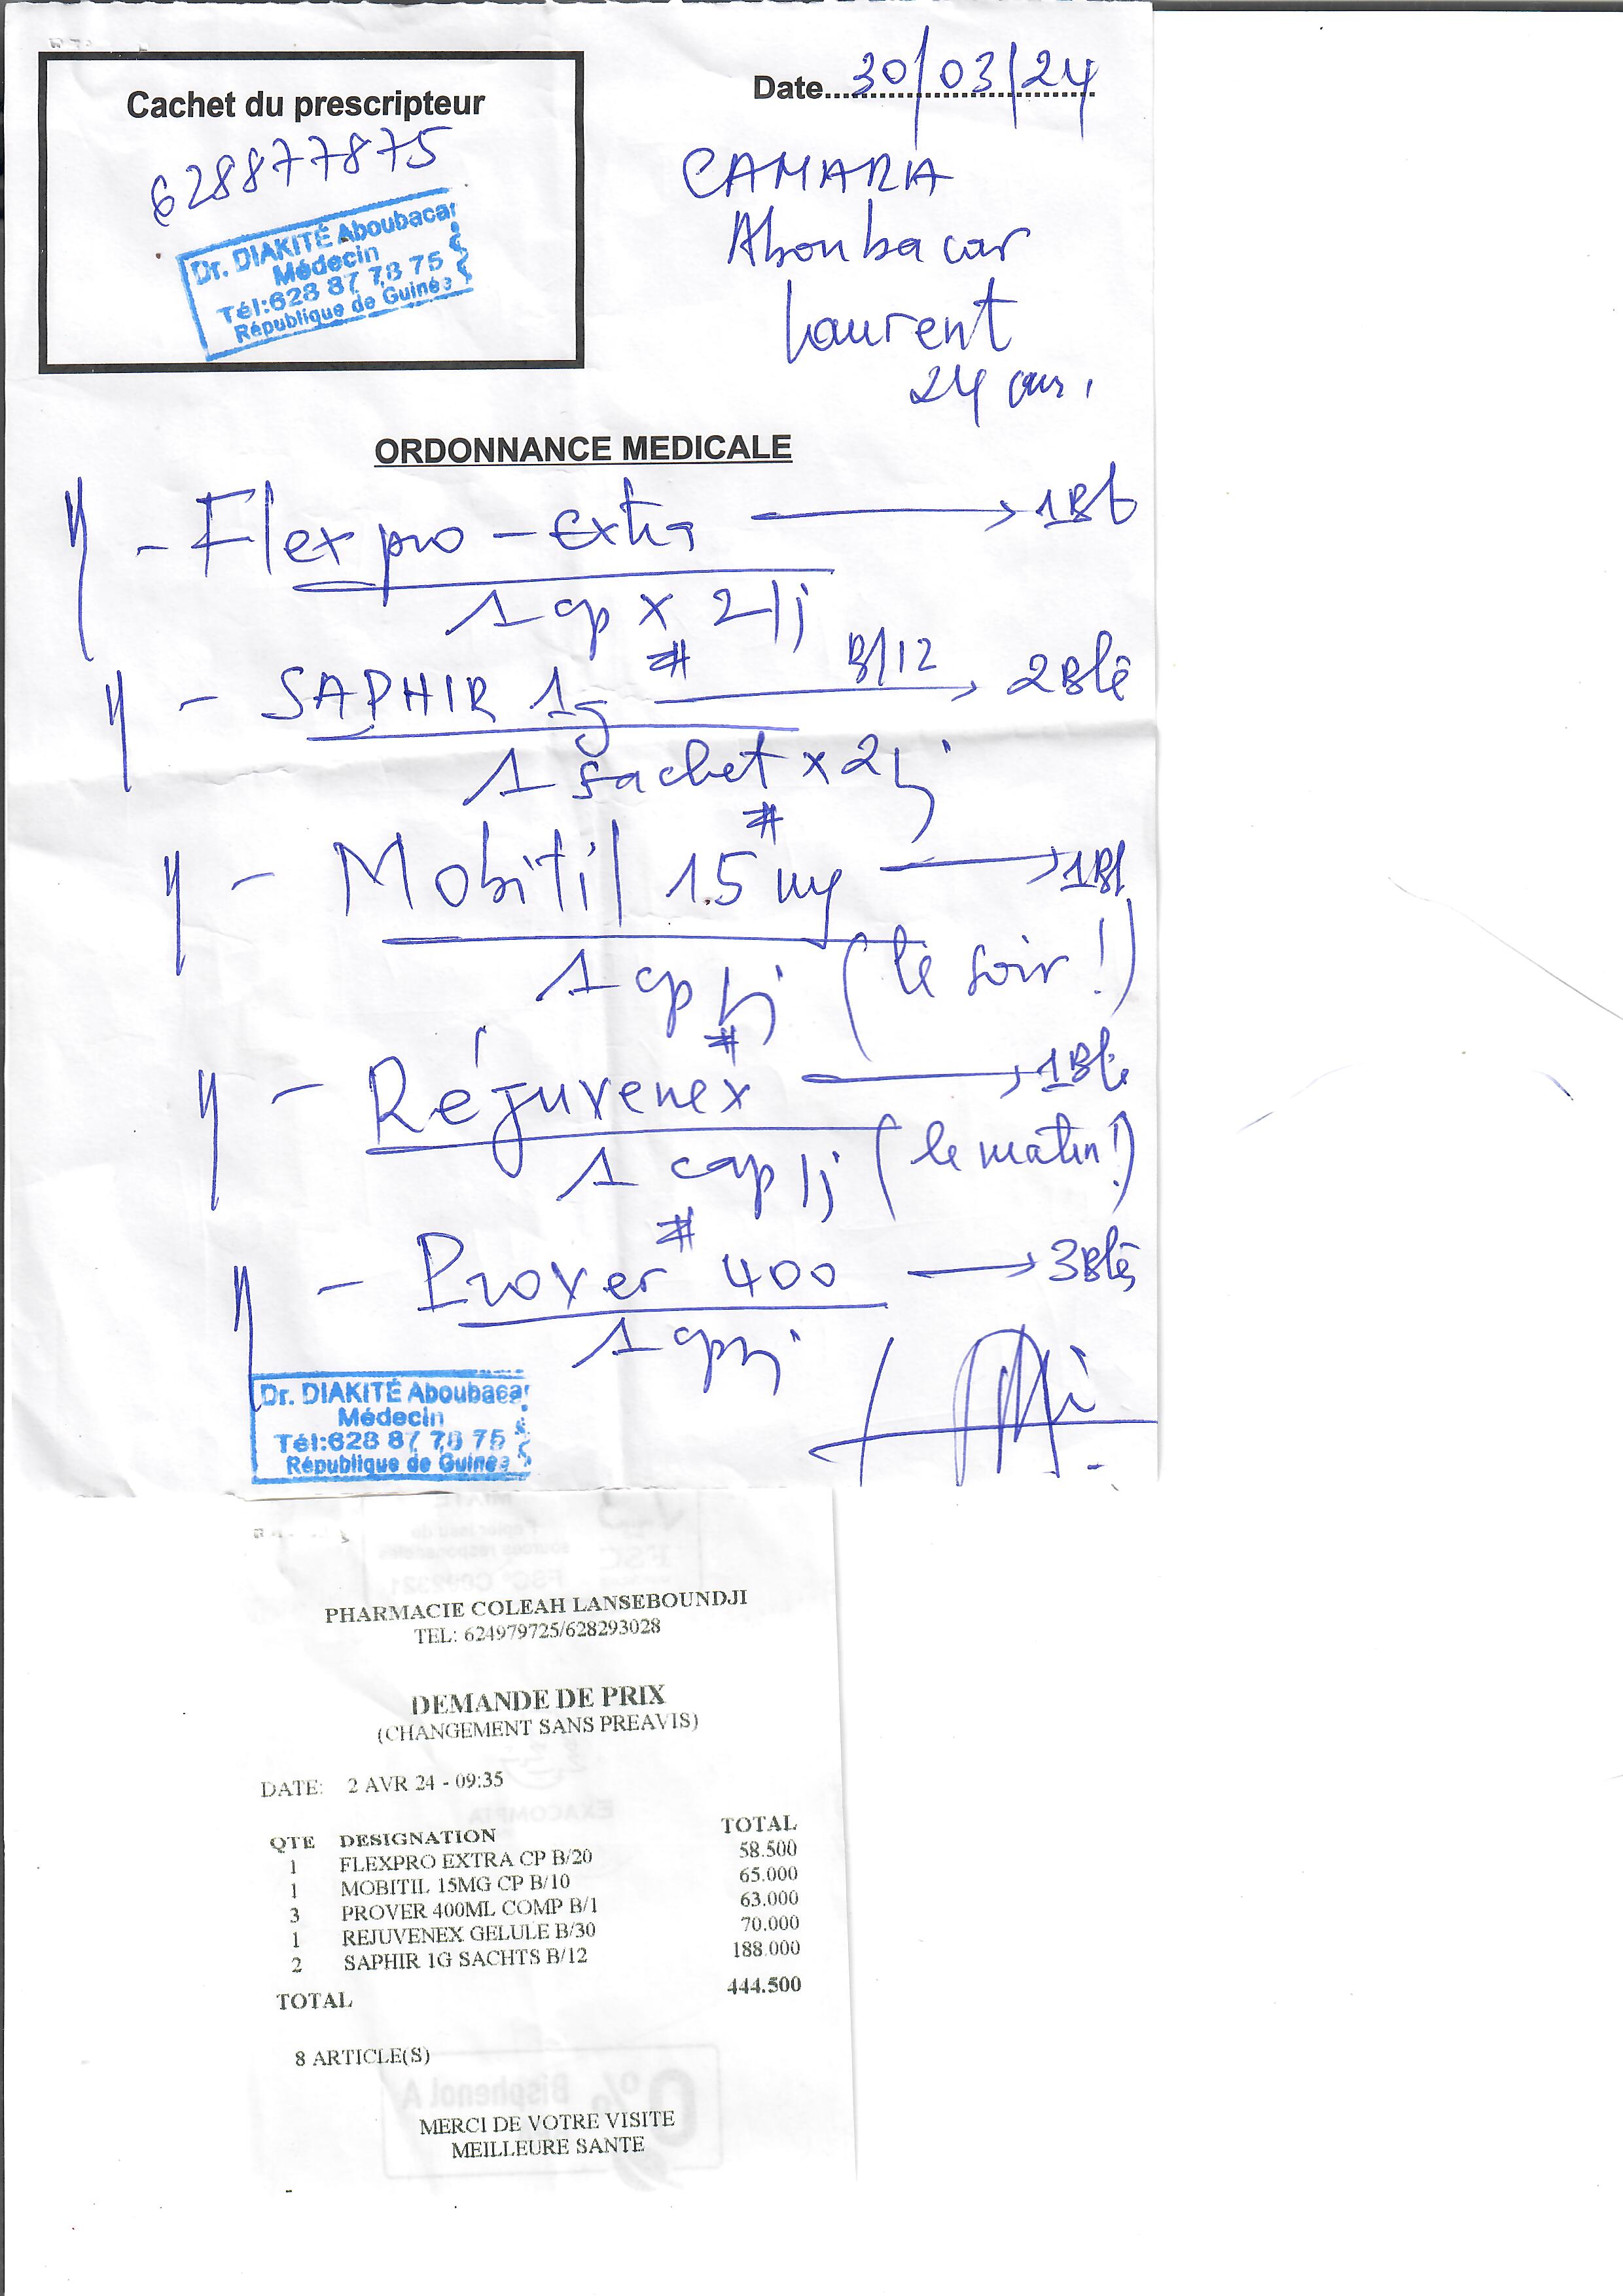 Cachet du prescripteur
628877875
Dr. DIAKITÉ Aboubacar
Médecin
Tél:628 87 78 75
République de Guinée
Date 30/03/24
CAMARA
Aboubacar
Laurent
24 ans
ORDONNANCE MEDICALE
- Flexpro-Extra → 1Bt
1 cp x 2/j
- SAPHIR 1g B/12 → 2Btê
1 sachet x 2/j
- Mobitil 15mg → 1Bt
1 cp/j (le soir!)
- Réjuvenex → 1Btê
1 cap/j (le matin!)
- Prover 400 → 3Btês
1 cp/j
Dr. DIAKITÉ Aboubacar
Médecin
Tél:628 87 78 75
République de Guinée
PHARMACIE COLEAH LANSEBOUNDJI
TEL: 624979725/628293028
DEMANDE DE PRIX
(CHANGEMENT SANS PREAVIS)
DATE: 2 AVR 24 - 09:35
QTE DESIGNATION TOTAL
1 FLEXPRO EXTRA CP B/20 58.500
1 MOBITIL 15MG CP B/10 65.000
3 PROVER 400ML COMP B/1 63.000
1 REJUVENEX GELULE B/30 70.000
2 SAPHIR 1G SACHTS B/12 188.000
TOTAL 444.500
8 ARTICLE(S)
0% Bisphenol A
MERCI DE VOTRE VISITE
MEILLEURE SANTE